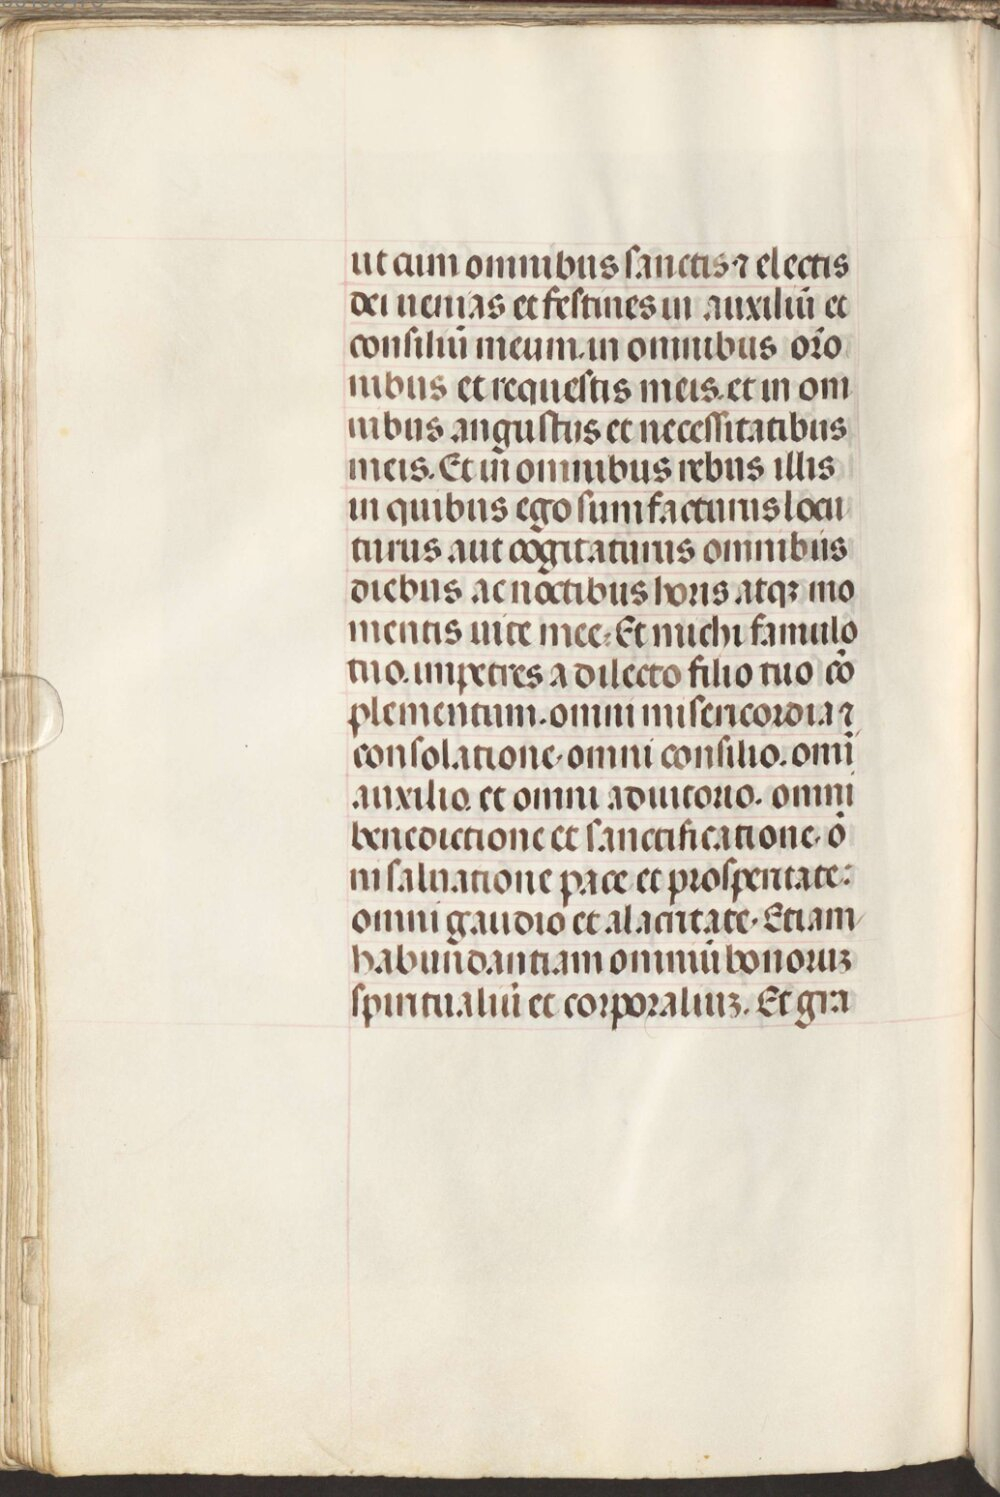 ut cum omnibus sanctis ⁊ electis
dei uenias et festines in auxiliū et
consiliū meum. in omnibus or̄o
nibus et requestis meis. et in om
nibus angustiis et necessitatibus
meis. Et in omnibus rebus illis
in quibus ego sum facturus locu
turus aut cogitaturus omnibus
diebus ac noctibus horis atqꝫ mo
mentis uite mee. Et michi famulo
tuo. impetres a dilecto filio tuo cō
plementum. omni misericordia ⁊
consolatione. omni consilio. omī
auxilio. et omni adiutorio. omni
benedictione et sanctificatione. ō
ni saluatione pace et prosperitate:
omni gaudio et alacritate. Etiam
habundantiam omniū bonoruꝫ
spiritualiū et corporaliuꝫ. Et gra